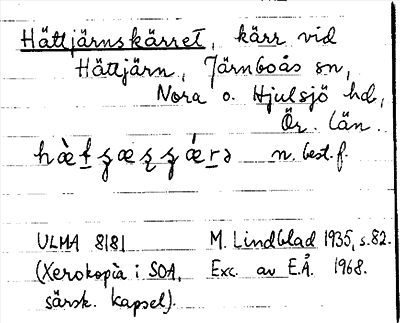 Hättjärnskärret, kärr vid
Hättjärn, Järnboås sn,
Nora o. Hjulsjö hd,
Ör. län.
n. best. f.
ULMA 8181 M. Lindblad 1935, s. 82.
(Xerokopia i SOA, Exc. av E.Å. 1968.
särsk. kapsel).